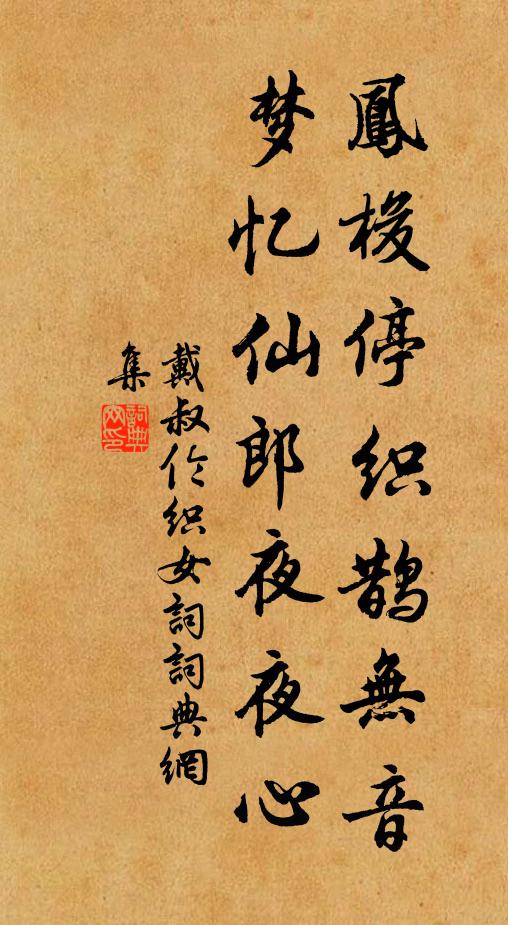 鳳梭停织鹊無音
梦忆仙郎夜夜心
戴叔伦织女詞詞典網
集
詞典网印